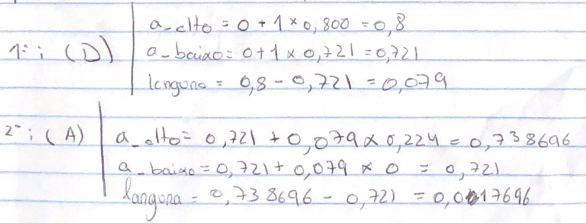 a_alto = 0 + 1 × 0,800 = 0,8
1ª ; (D) a_baixo = 0 + 1 × 0,721 = 0,721
langura = 0,8 - 0,721 = 0,079
2ª ; (A) a_alto = 0,721 + 0,079 × 0,224 = 0,738696
a_baixo = 0,721 + 0,079 × 0 = 0,721
langura = 0,738696 - 0,721 = 0,017696